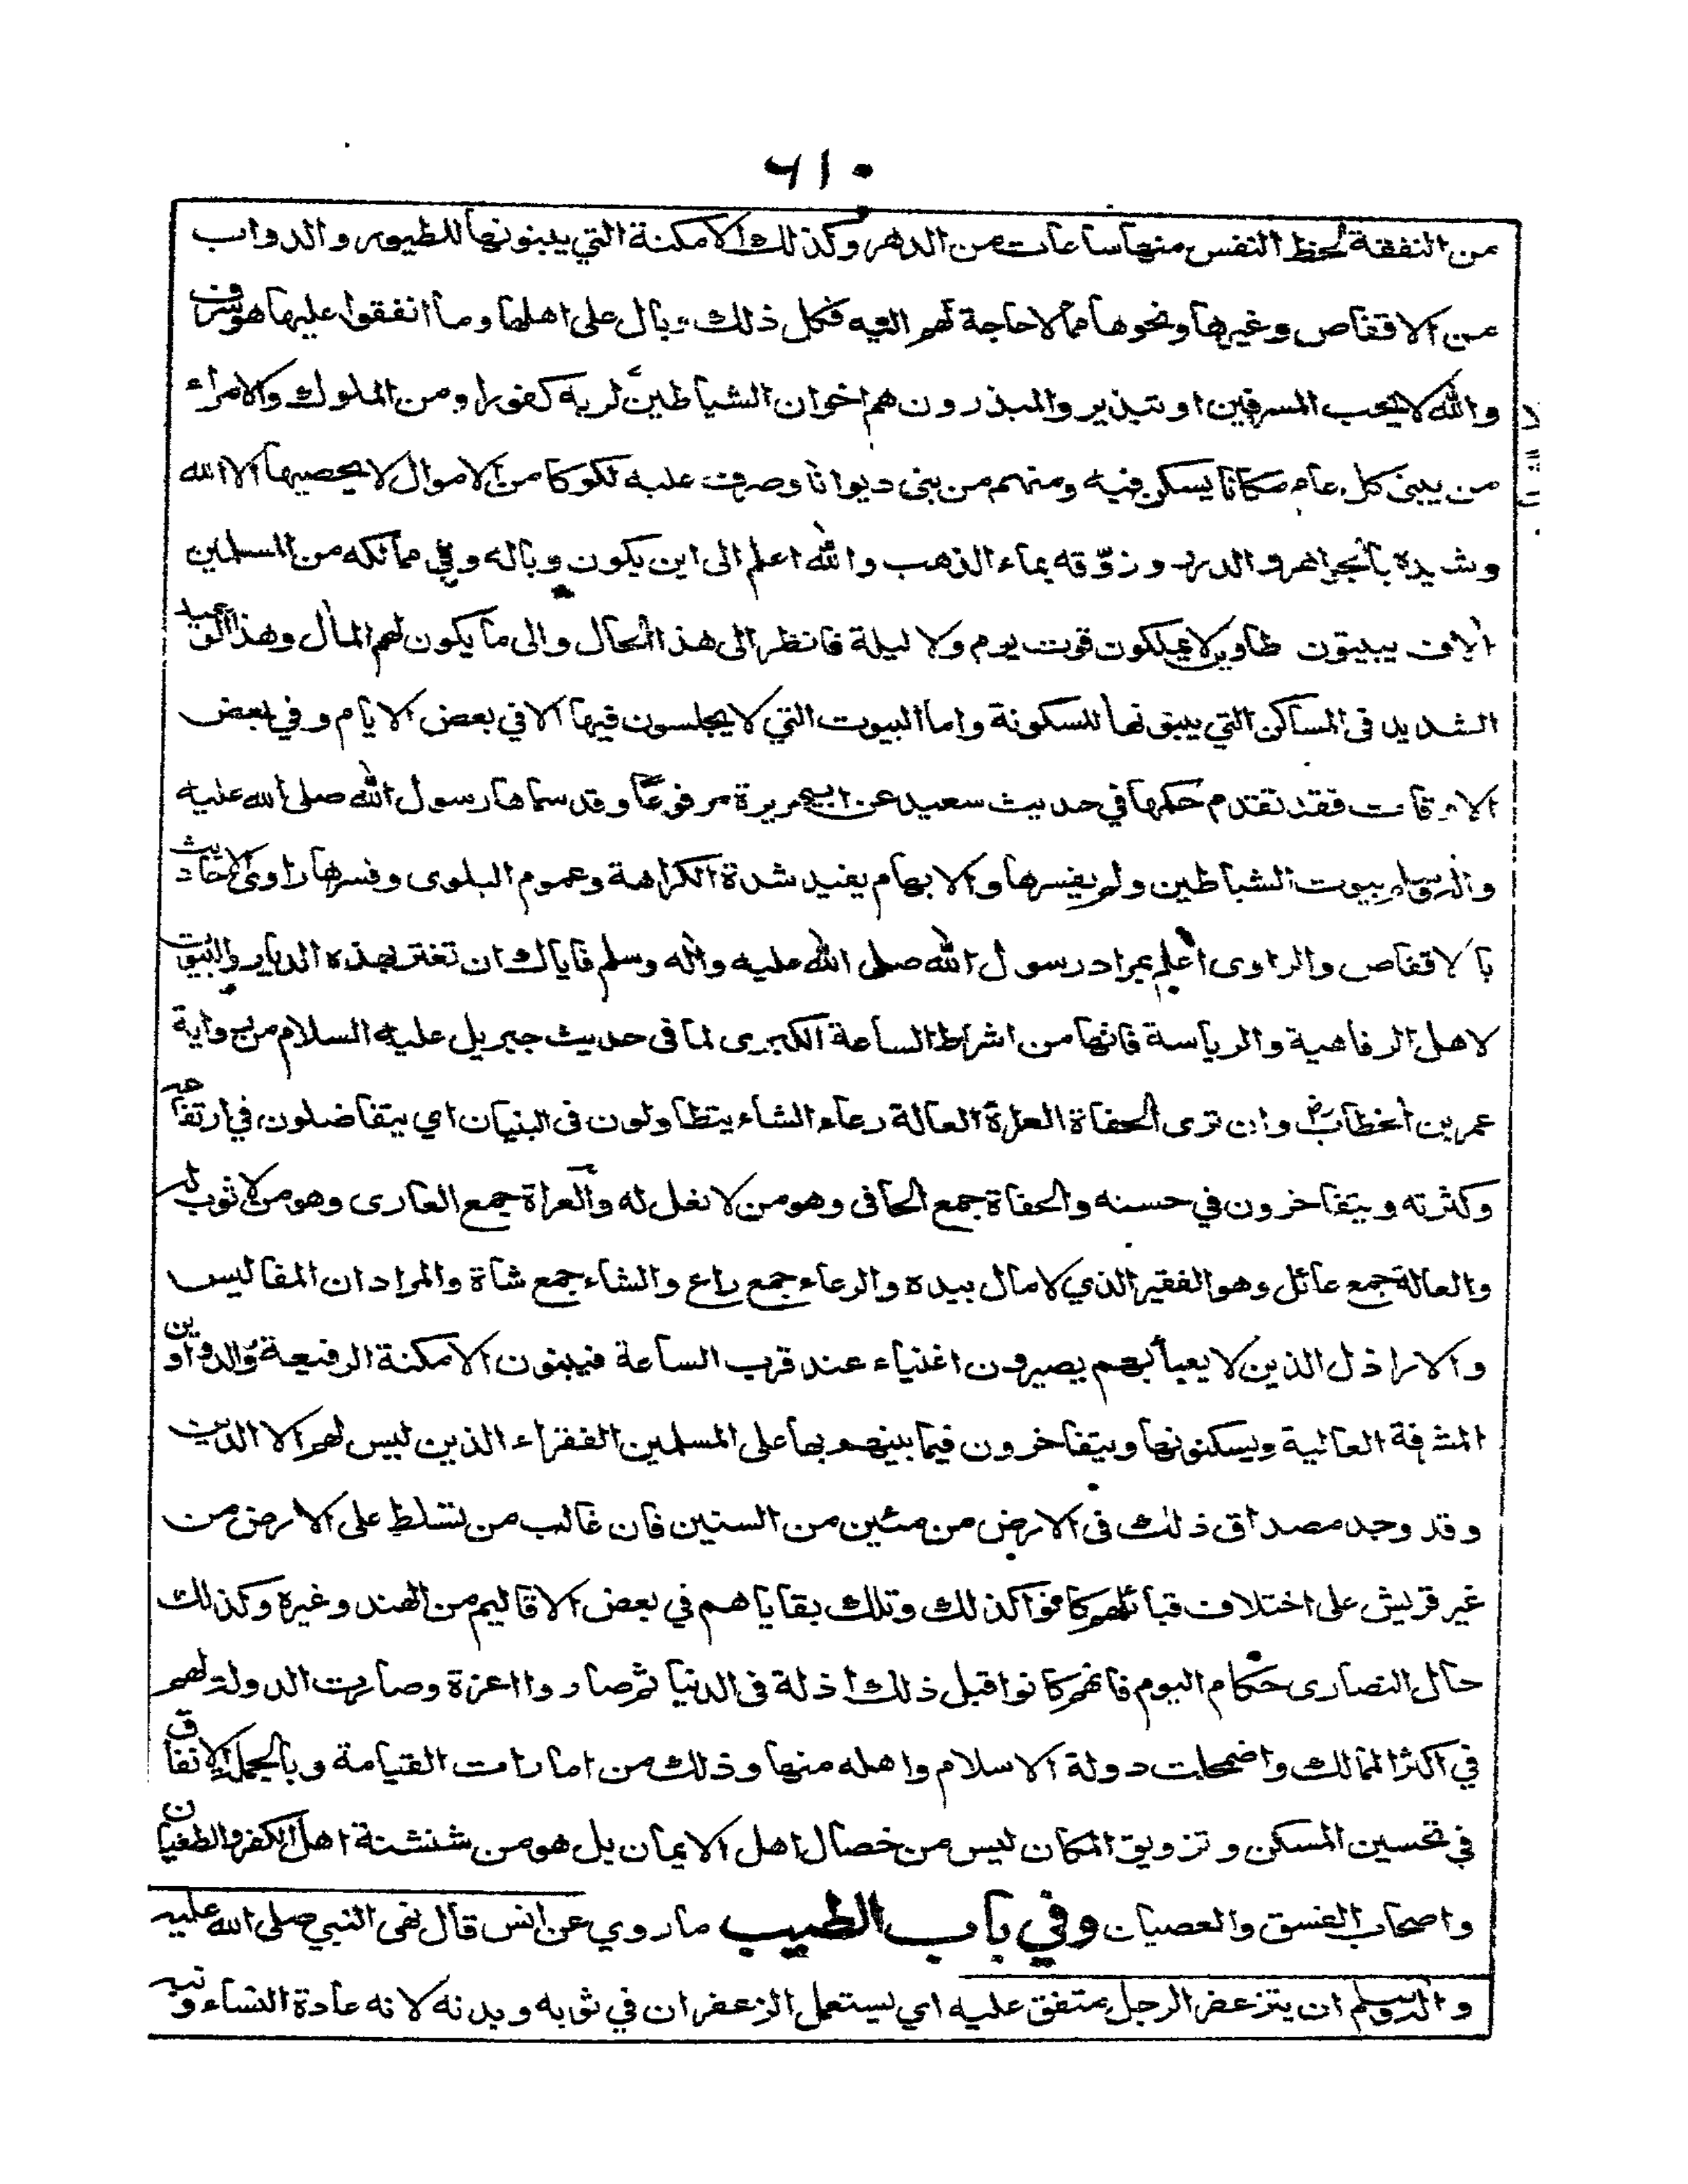 ٦١٠
من النفقة لحظ النفس منها ساعات من الدهر وكذلك الامكنة التي يبنونها للطيور والدواب
من الاقفاص وغيرها ونحوها مما لا حاجة لهم اليه فكل ذلك وبال على اهلها وما انفقوا عليها هو سرف
والله لا يحب المسرفين او تبذير والمبذرون هم اخوان الشياطين لربه كفورا ومن الملوك والامراء
من يبنى كل عام مكانا يسكن فيه ومنهم من بنى ديوانا وصرف عليه لكوكا من الاموال لا يحصيها الا الله
وشيده بالجواهر والدرر وزوّقه بماء الذهب والله اعلم الى اين يكون وباله وفي ممالكه من المسلمين
آلاف يبيتون طاوين لا يملكون قوت يوم ولا ليلة فانظر الى هذا الحال والى ما يكون لهم المآل وهذا الوعيد
الشديد في المساكن التي يبنونها للسكونة واما البيوت التي لا يجلسون فيها الا في بعض الايام وفي بعض
الاوقات فقد تقدم حكمها في حديث سعيد عن ابي هريرة مرفوعا وقد سماها رسول الله صلى الله عليه
واله وسلم بيوت الشياطين ولم يفسرها والابهام يفيد شدة الكراهة وعموم البلوى وفسرها راوي الاحاديث
بالاقفاص والراوى اعلم بمراد رسول الله صلى الله عليه واله وسلم فاياك ان تغتر بهذه الديار والبيوت
لاهل الرفاهية والرياسة فانها من اشراط الساعة الكبرى لما في حديث جبريل عليه السلام من رواية
عمر بن الخطاب رض وان ترى الحفاة العراة العالة رعاء الشاء يتطاولون في البنيان اي يتفاضلون في ارتفاعه
وكثرته ويتفاخرون في حسنه والحفاة جمع الحافى وهو من لا نعل له والعراة جمع العارى وهو من لا ثوب له
والعالة جمع عائل وهو الفقير الذي لا مال بيده والرعاء جمع راع والشاء جمع شاة والمراد ان المفاليس
والاراذل الذين لا يعبأ بهم يصيرون اغنياء عند قرب الساعة فيبنون الامكنة الرفيعة والدواوين
المشرفة العالية ويسكنونها ويتفاخرون فيما بينهم بها على المسلمين الفقراء الذين ليس لهم الا الدين
وقد وجد مصداق ذلك في الارض من مئين من السنين فان غالب من تسلط على الارض من
غير قريش على اختلاف قبائلهم كانوا كذلك وتلك بقاياهم في بعض الاقاليم من الهند وغيره وكذلك
حال النصارى حكام اليوم فانهم كانوا قبل ذلك اذلة في الدنيا ثم صاروا اعزة وصارت الدولة لهم
في اكثر الممالك واضمحلت دولة الاسلام واهله منها وذلك من امارات القيامة وبالجملة الانفاق
في تحسين المسكن وتزويق المكان ليس من خصال اهل الايمان بل هو من شنشنة اهل الكفر والطغيان
واصحاب الفسق والعصيان وفي باب الطيب ما روي عن انس قال نهى النبي صلى الله عليه
واله وسلم ان يتزعفر الرجل متفق عليه اي يستعمل الزعفران في ثوبه وبدنه لانه عادة النساء وفيه